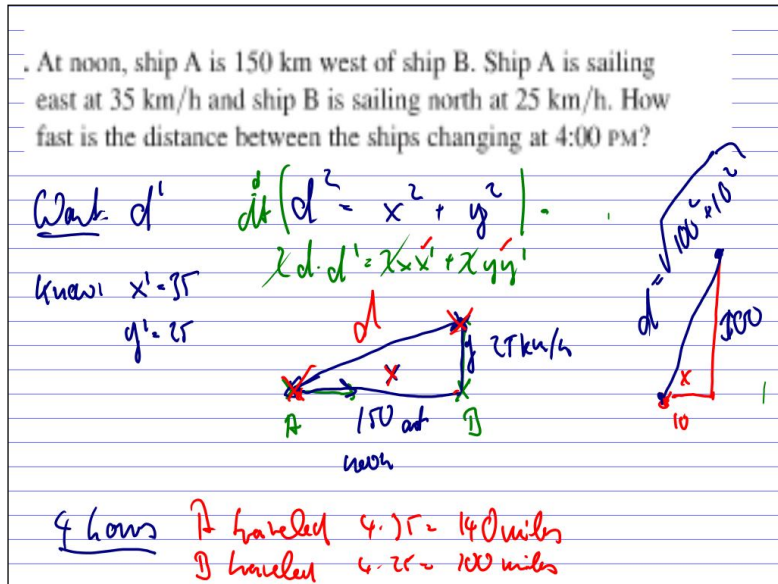 . At noon, ship A is 150 km west of ship B. Ship A is sailing
east at 35 km/h and ship B is sailing north at 25 km/h. How
fast is the distance between the ships changing at 4:00 PM?
Want d'
d/dt (d² = x² + y²).
2d·d' = 2xx' + 2yy'
Know: x' = 35
y' = 25
d
x
y 25km/h
A
150 at
noon
B
d = √100² + 10²
100
x
10
4 hours A traveled 4·35 = 140 miles
B traveled 4·25 = 100 miles